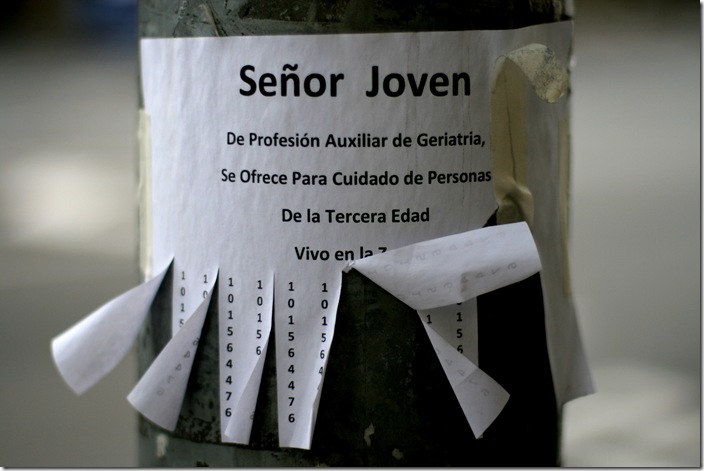 Señor Joven
De Profesión Auxiliar de Geriatria,
Se Ofrece Para Cuidado de Personas
De la Tercera Edad
Vivo en la
101564476
101564476